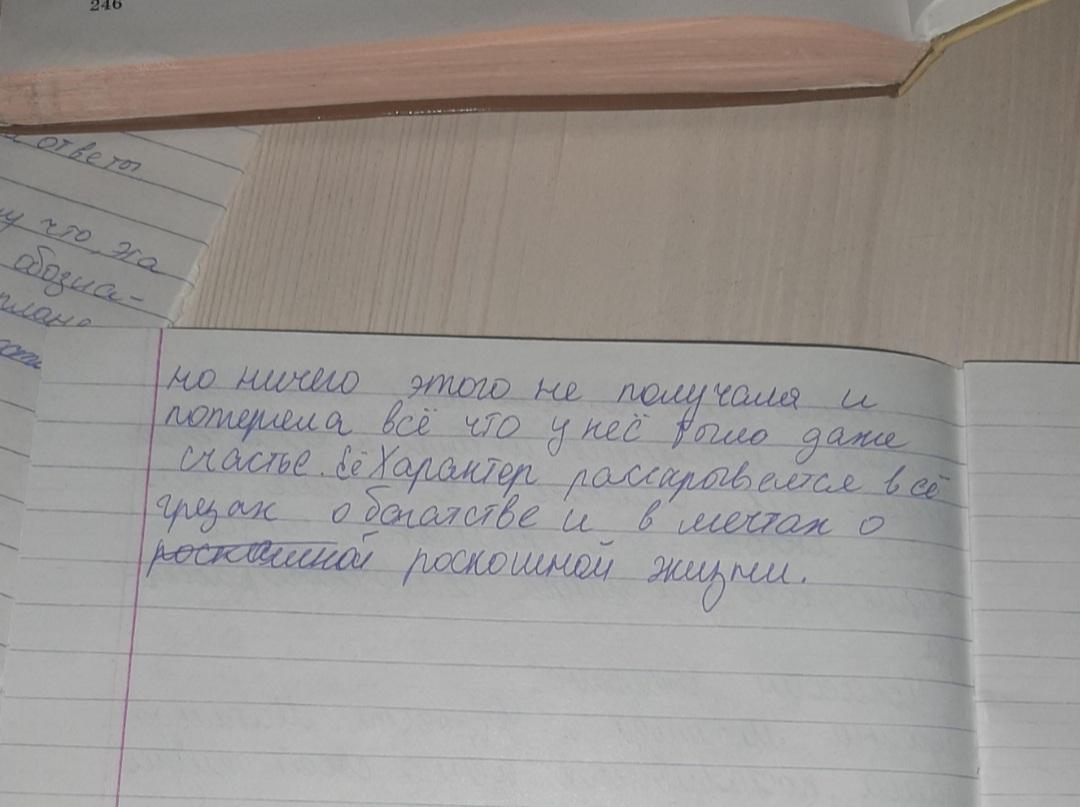 246
ответы
что эта
обозна-
плане
но ничего этого не получала и
потеряла всё что у неё было даже
счастье. Её Характер расскрывается в её
грезах о богатстве и в мечтах о
роскошной роскошной жизни.